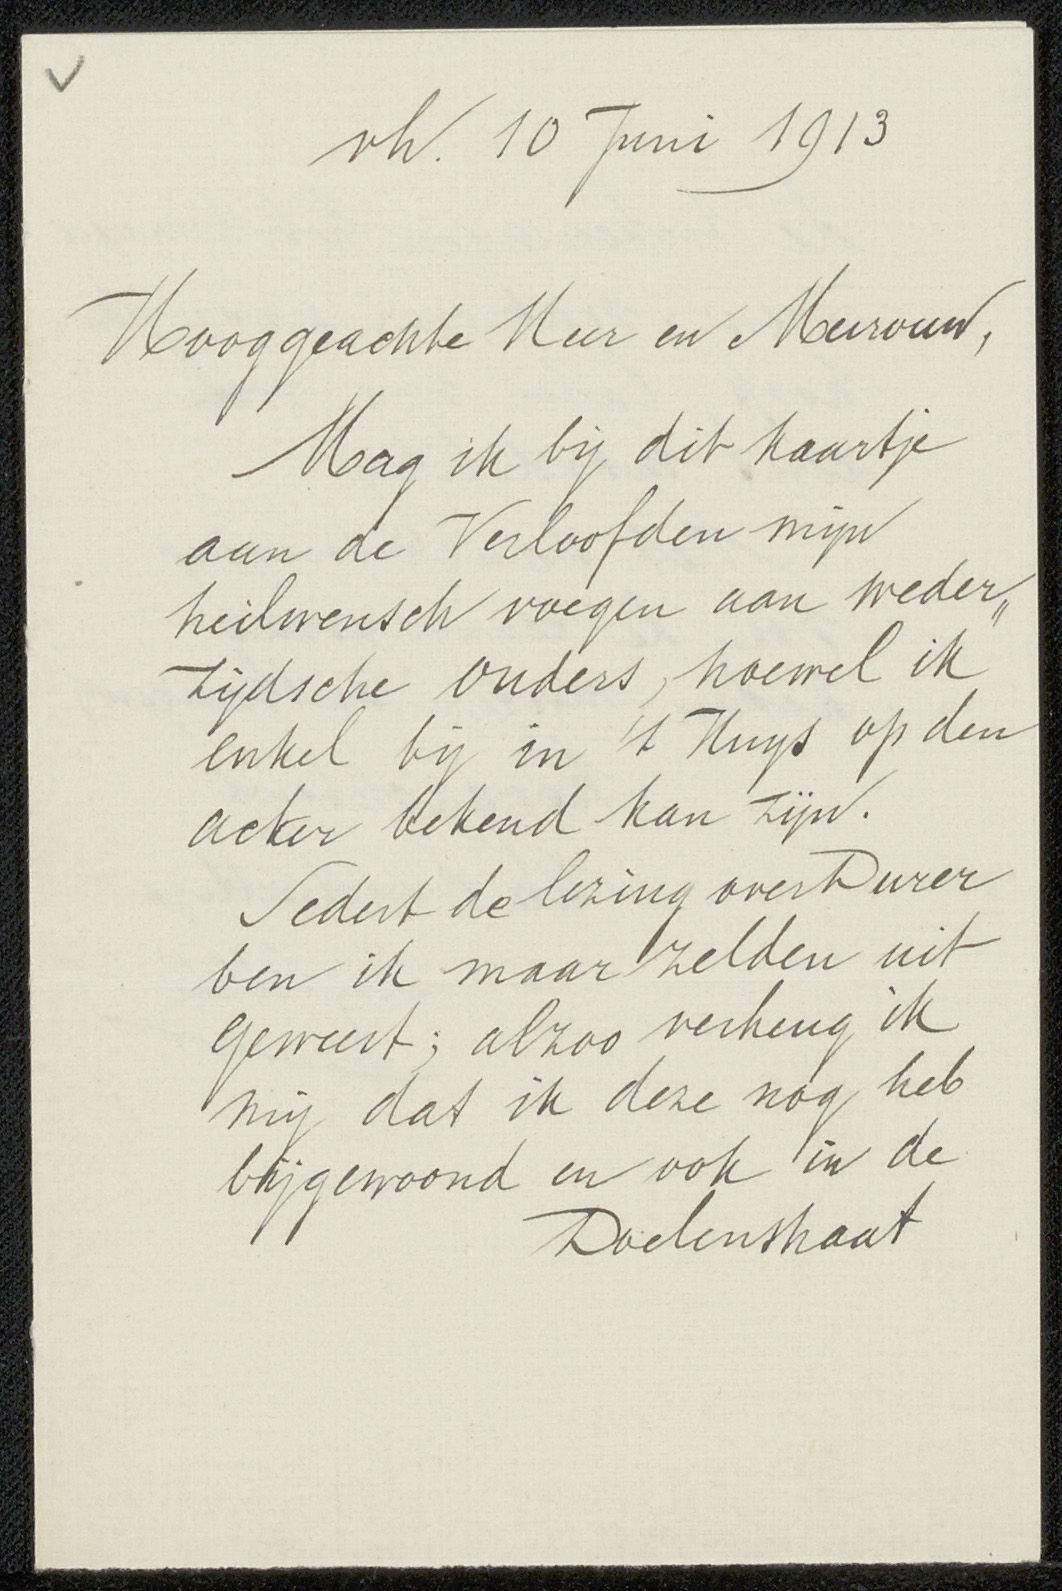 vh. 10 Juni 1913
Hooggeachte Heer en Mevrouw,
Mag ik bij dit kaartje
aan de Verloofden mijn
heilwensch voegen aan weder„
zijdsche ouders, hoewel ik
enkel bij in 't Huys op den
acker bekend kan zijn.
Sedert de lezing over Durer
ben ik maar zelden uit
geweest; alzoo verheug ik
mij dat ik deze nog heb
bijgewoond en ook in de
Doelenstraat